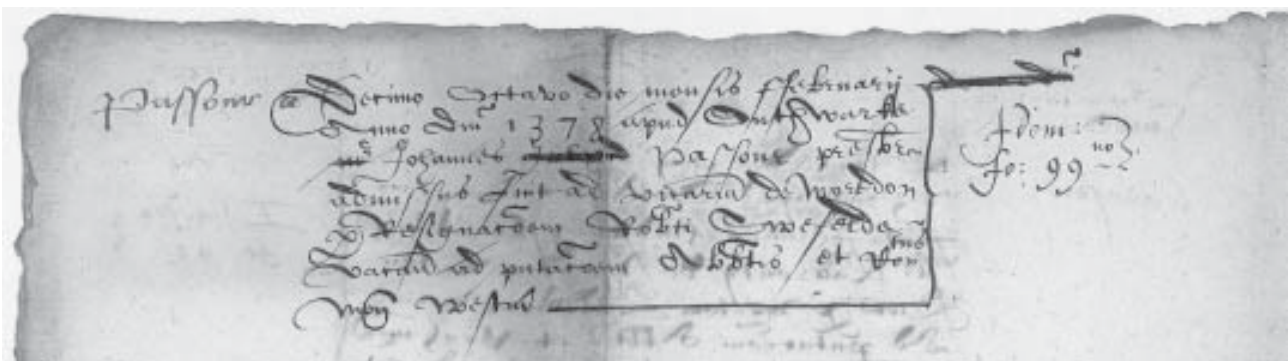 Passour
Decimo Octavo die mensis ffebruarij
Anno dni 1378 apud Suthwarke
Johannes Passour presbr
admissus fuit ad vicaria de Moredon
Resignacoem Robti Swefelde
vacan ad pntacoem Abbtis et Con
Westm
Idem:
fo: 99 no